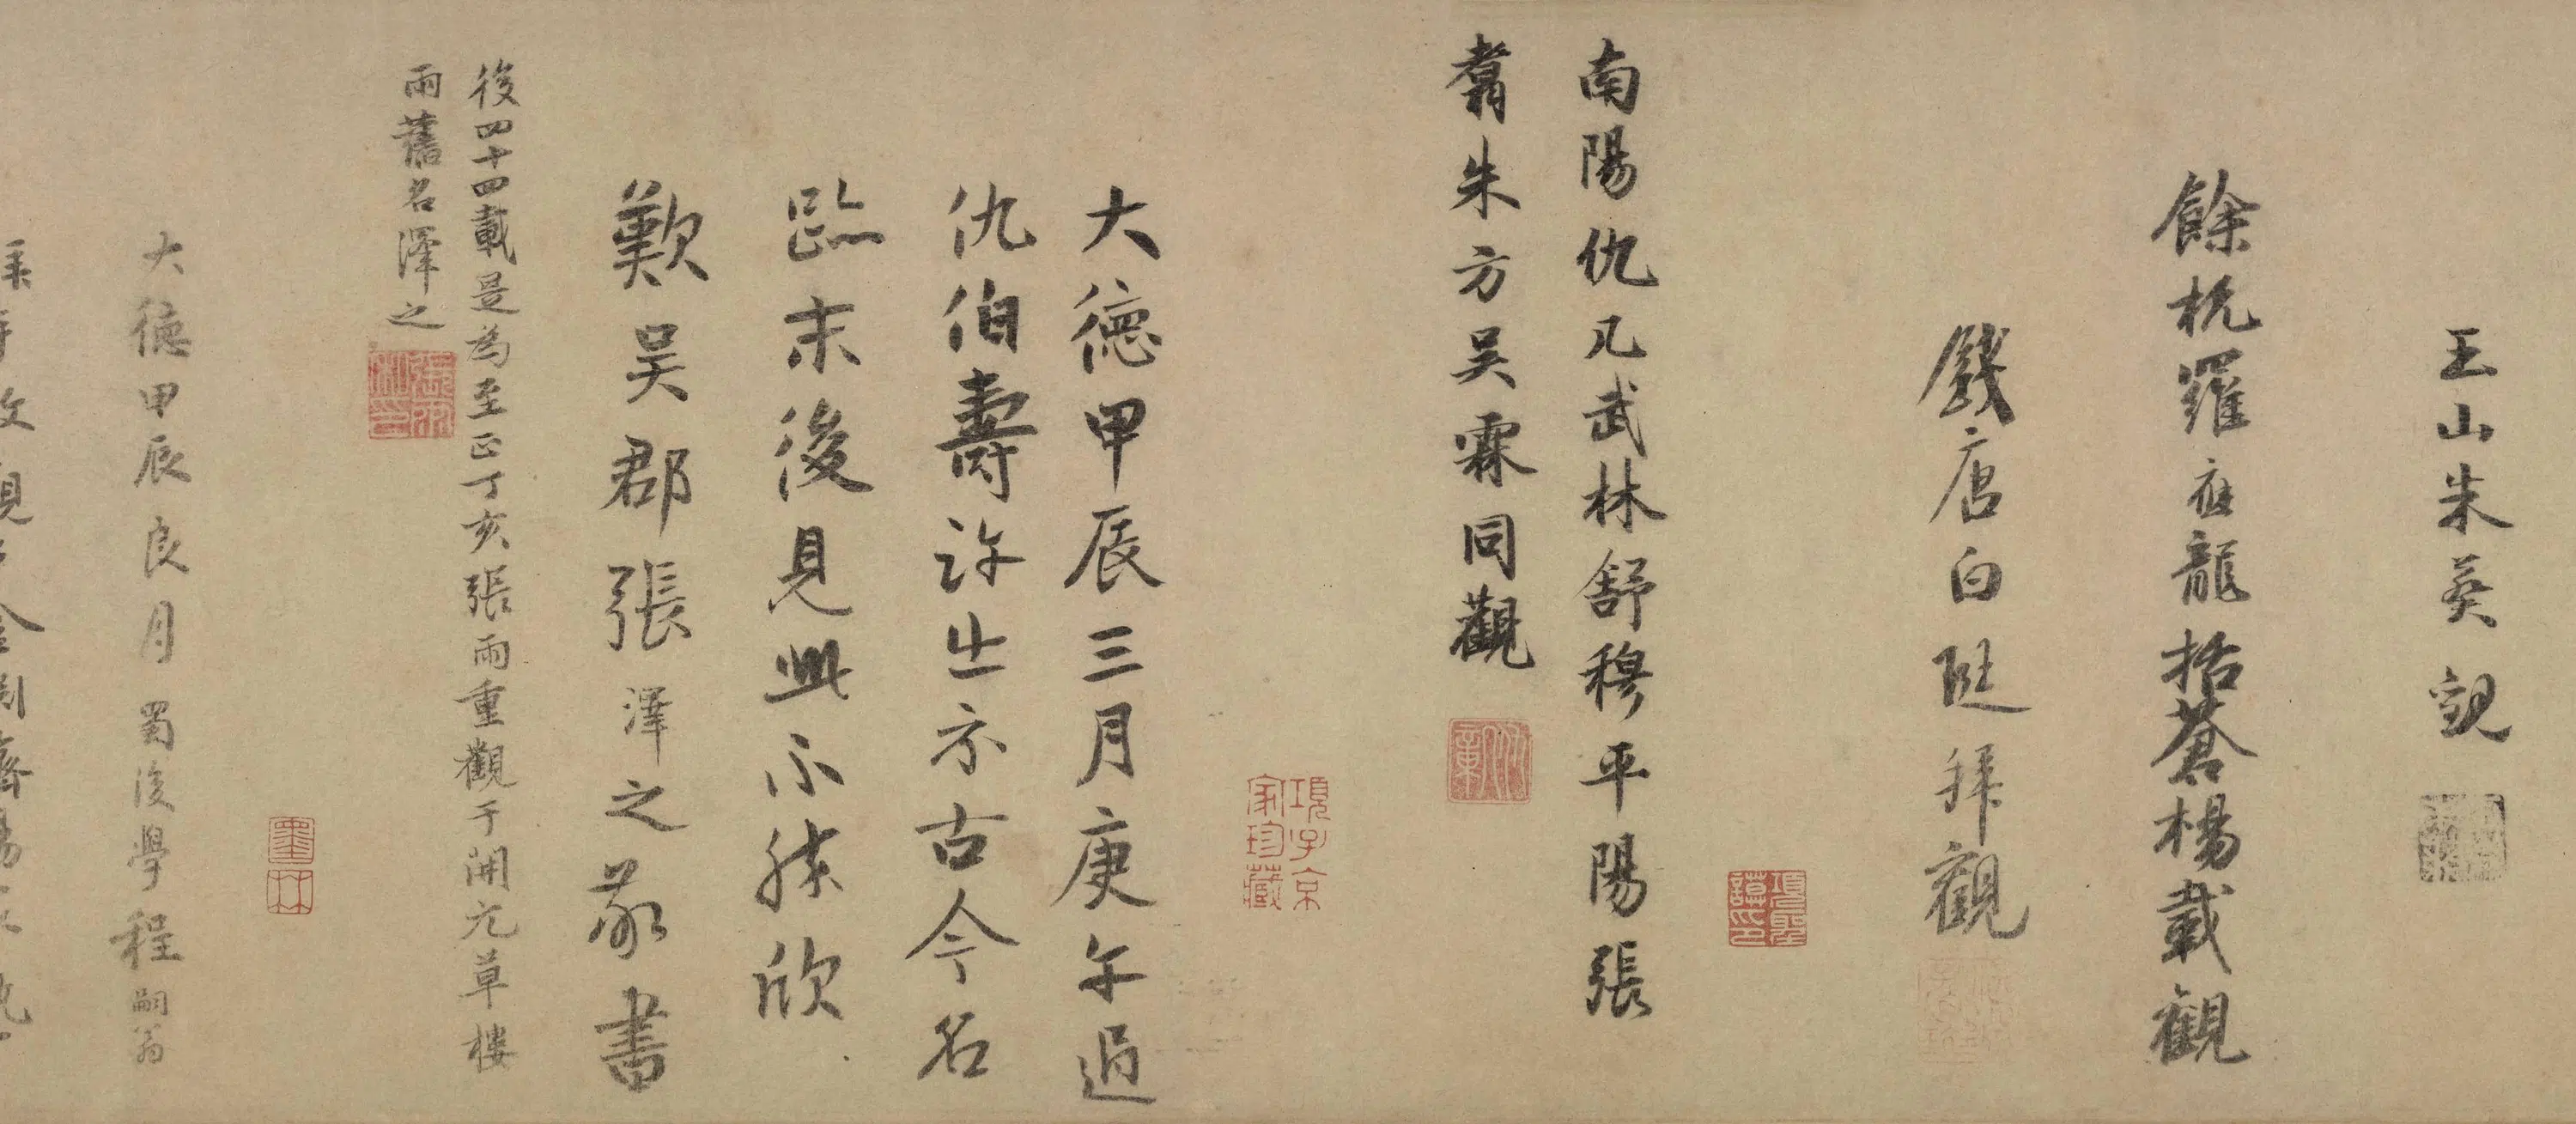 玉山朱葵觀
餘杭羅應龍括蒼楊載觀
錢唐白珽拜觀
項聖謨印
南陽仇几武林舒穆平陽張
翥朱方吳霖同觀
項子京家珍藏
大德甲辰三月庚午過
仇伯壽許出示古今名
跡末後見此不勝欣
歎吳郡張澤之敬書
後四十四載是為至正丁亥張雨重觀于開元草樓
雨舊名澤之
墨林
大德甲辰良月蜀後學程嗣翁